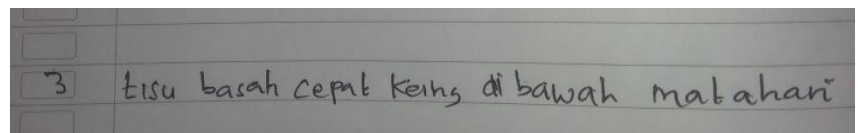 3 tisu basah cepat kering di bawah matahari